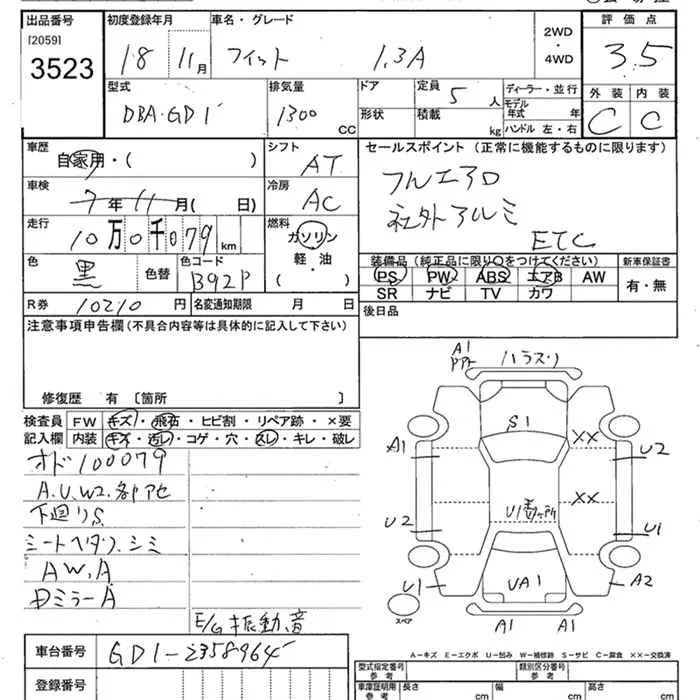 出品番号 初度登録年月 車名・グレード 評価点
[2059]
3523 18 11月 フィット 1.3A 2WD・4WD 3.5
型式 排気量 ドア 定員 ディーラー・並行 外装 内装
DBA-GD1 1300 CC 形状 5人 モデル年式 年 C C
積載 kg ハンドル 左・右
車歴 シフト セールスポイント(正常に機能するものに限ります)
自家用・( ) AT フルエアロ
車検 冷房 社外アルミ
7年11月( 日) AC ETC
走行 燃料
10万0千079 km ガソリン
軽・油
( ・ )
色 色コード 装備品(純正品に限り○をつけてください) 新車保証書
黒 色替 B92P PS PW ABS エアB AW 有・無
SR ナビ TV カワ
R券 10210円 名変通知期限 月 日 後日品
注意事項申告欄(不具合内容等は具体的に記入して下さい)
修復歴 有 〔箇所 〕
検査員 FW キズ・飛石・ヒビ割・リペア跡・×要
記入欄 内装 キズ・汚レ・コゲ・穴・スレ・キレ・破レ
オド100079
A.U.W2.各部アセ
下廻りS
シートヘタリ.シミ
AW.A
DミラーA
E/G振動音
車台番号 GD1-2358964
登録番号
A1
ハラスリ
S1
××
A1 U2
××
U2 U1
U1 UA1 A2
スペア
A1 A1
A-キズ E-エクボ U-凹み W-補修跡 S-サビ C-腐食 ××-交換済
型式指定番号 参考 類別区分番号 参考
車庫証明用 参考 長さ cm 幅 cm 高さ cm